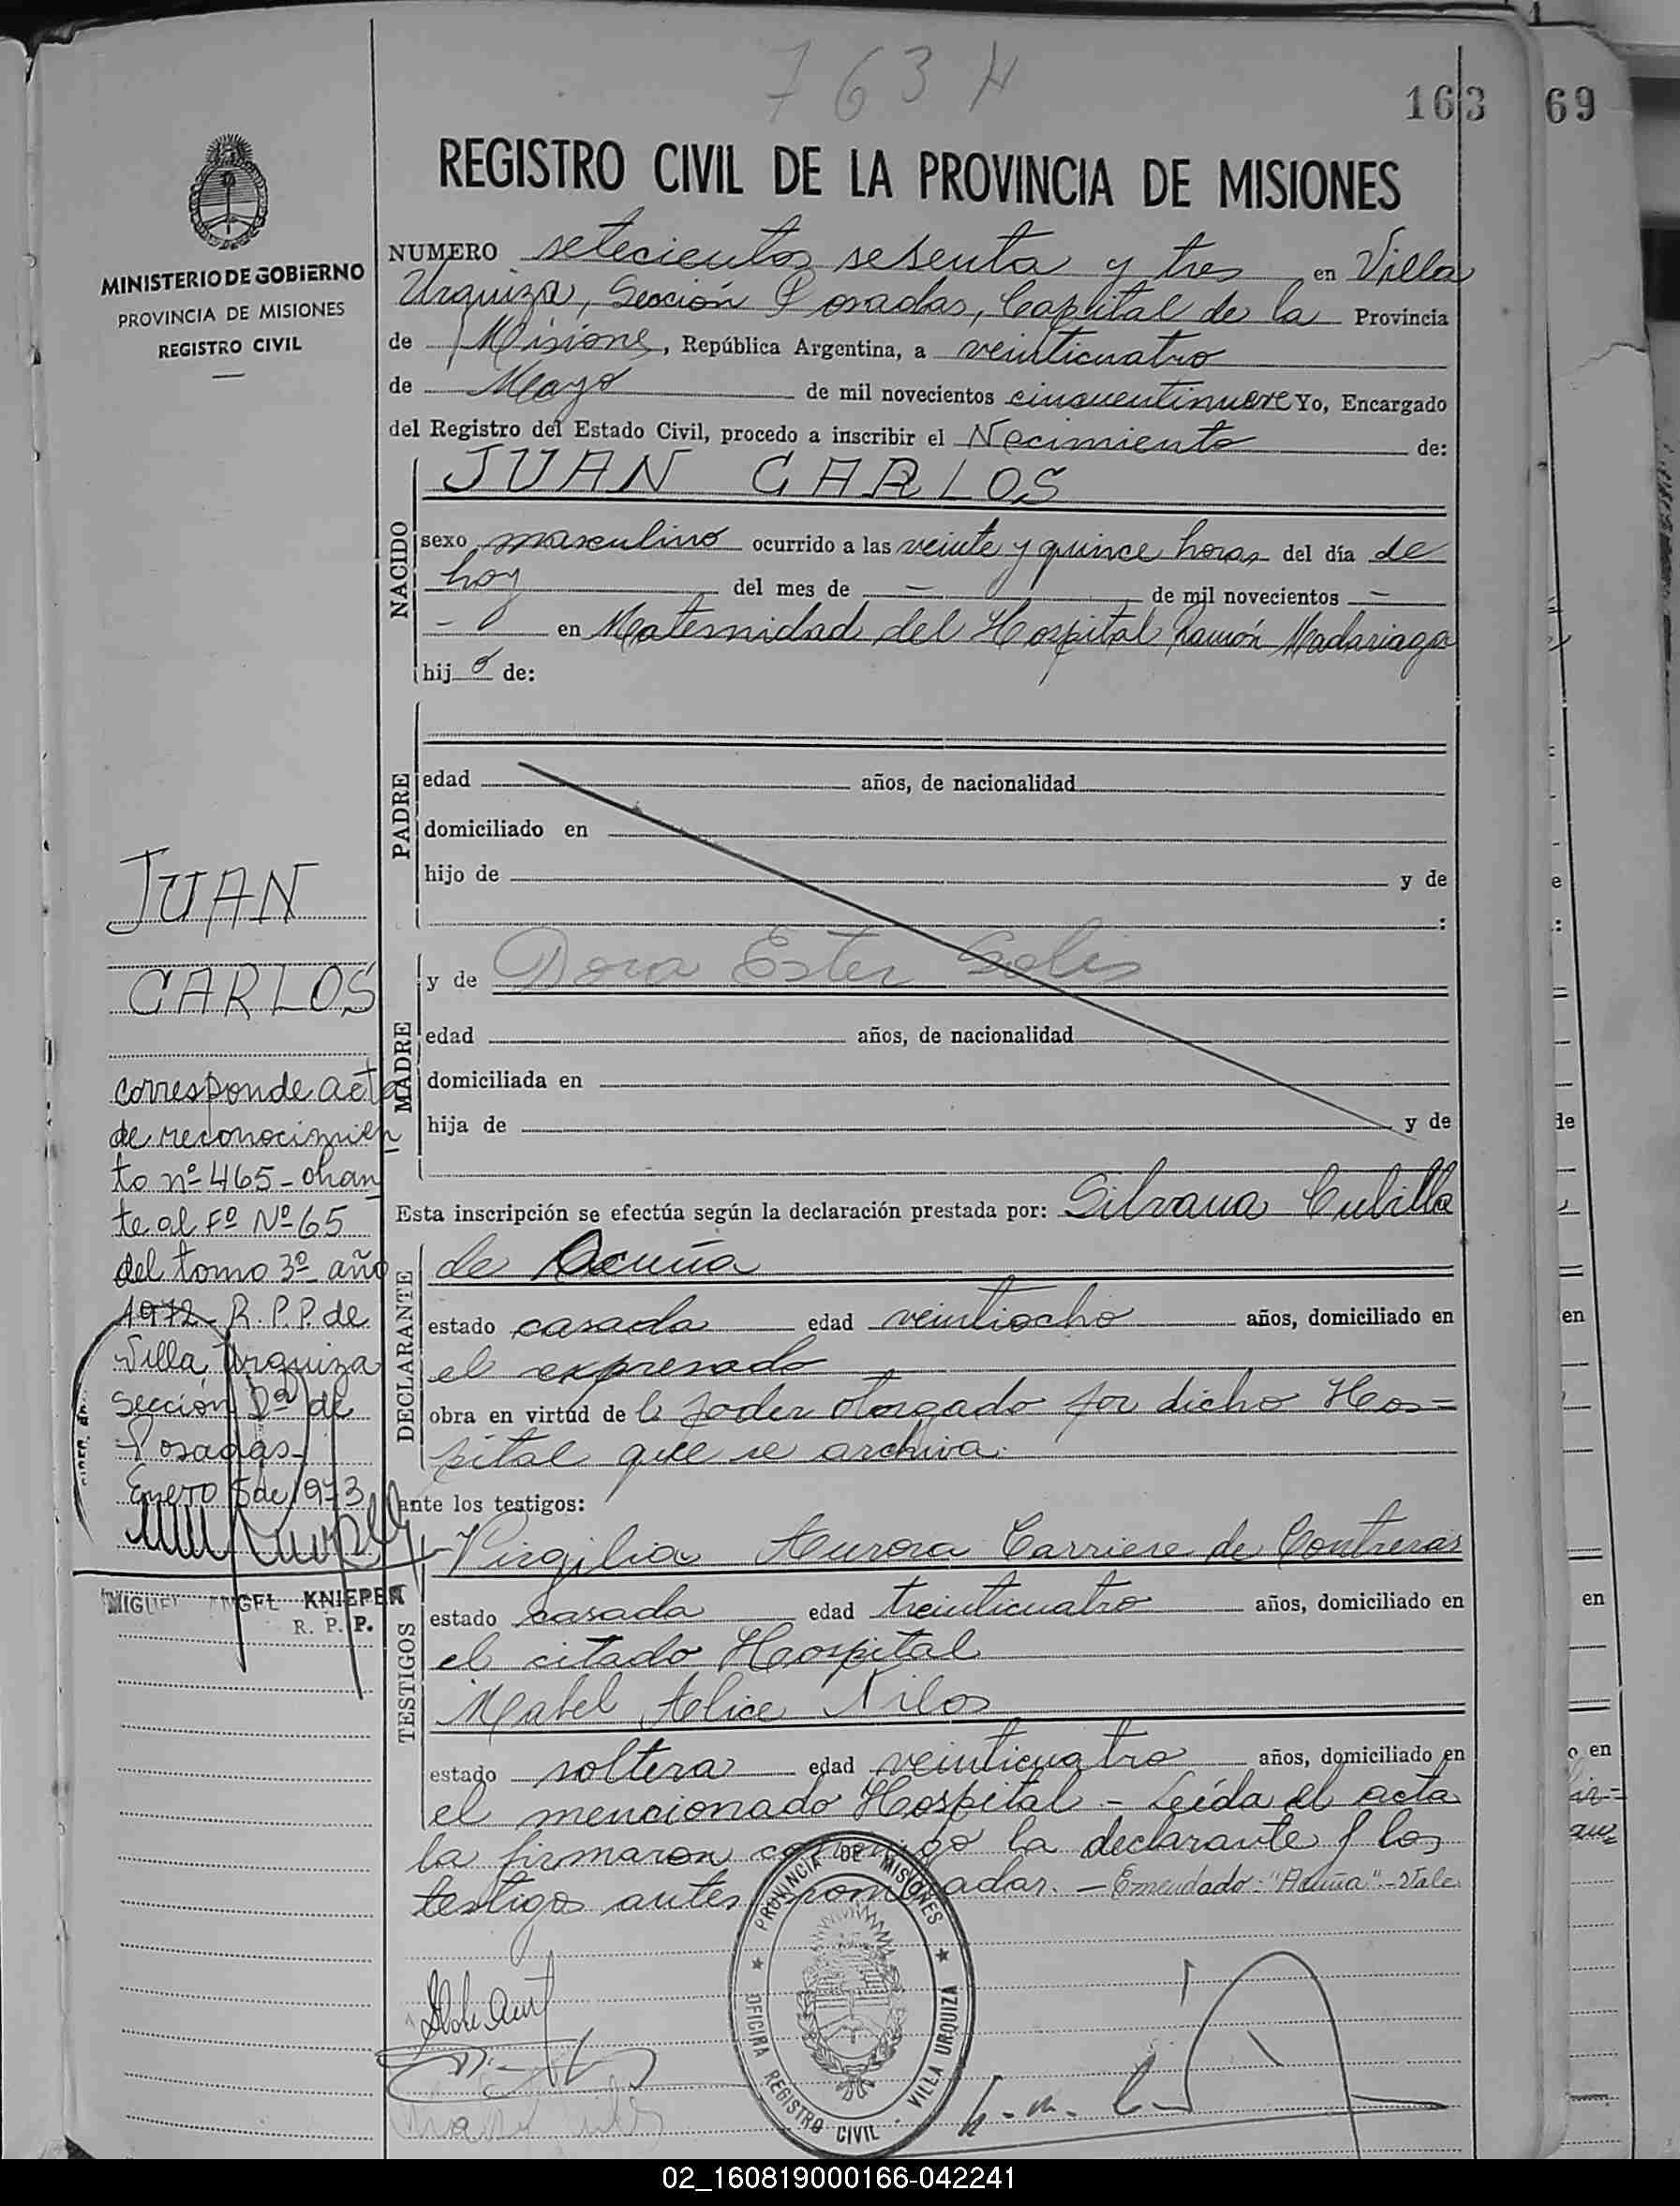 763 H
163
69
REGISTRO CIVIL DE LA PROVINCIA DE MISIONES
MINISTERIO DE GOBIERNO
PROVINCIA DE MISIONES
REGISTRO CIVIL
NUMERO setecientos sesenta y tres en Villa
Urquiza, Sección Posadas, Capital de la Provincia
de Misiones, República Argentina, a veinticuatro
de Mayo de mil novecientos cincuentinueve Yo, Encargado
del Registro del Estado Civil, procedo a inscribir el Nacimiento de:
NACIDO
JUAN CARLOS
sexo masculino ocurrido a las veinte y quince horas del día de
hoy del mes de — de mil novecientos —
— en Maternidad del Hospital Ramón Madariaga
hijo de:
PADRE
edad años, de nacionalidad
domiciliado en
hijo de y de
:
MADRE
y de Dora Ester Solis
edad años, de nacionalidad
domiciliada en
hija de y de
Esta inscripción se efectúa según la declaración prestada por: Silvana Cubilla
DECLARANTE
de Acuña
estado casada edad veintiocho años, domiciliado en
el expresado
obra en virtud de el poder otorgado por dicho Hos=
pital que se archiva.
ante los testigos:
TESTIGOS
Virgilia Aurora Carriere de Contreras
estado casada edad treinticuatro años, domiciliado en
el citado Hospital
Mabel Alice Nilos
estado soltera edad veinticuatro años, domiciliado en
el mencionado Hospital - Leída el acta
la firmaron conmigo la declarante y los
testigos antes nombradas. - Emendado: "Acuña" - Vale.
JUAN
CARLOS
corresponde acta
de reconocimien
to nº 465 - obran
te al Fº Nº 65
del tomo 3º año
1972 R.P.P. de
Villa Urquiza
Sección 2ª de
Posadas-
Enero 5 de 1973
MIGUEL ANGEL KNIEPER
R. P. P.
PROVINCIA DE MISIONES
OFICINA REGISTRO CIVIL - VILLA URQUIZA
en
en
02_160819000166-042241